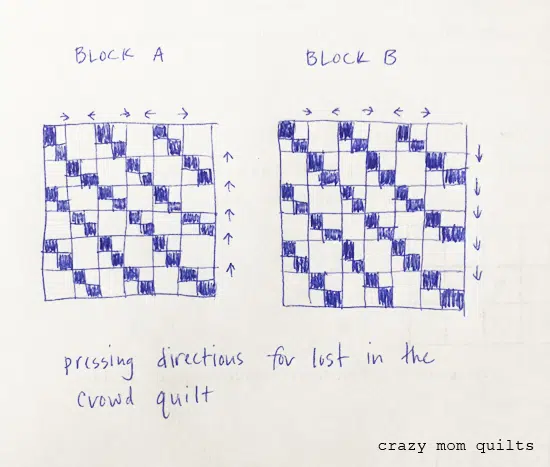 BLOCK A
BLOCK B
pressing directions for lost in the
crowd quilt
crazy mom quilts